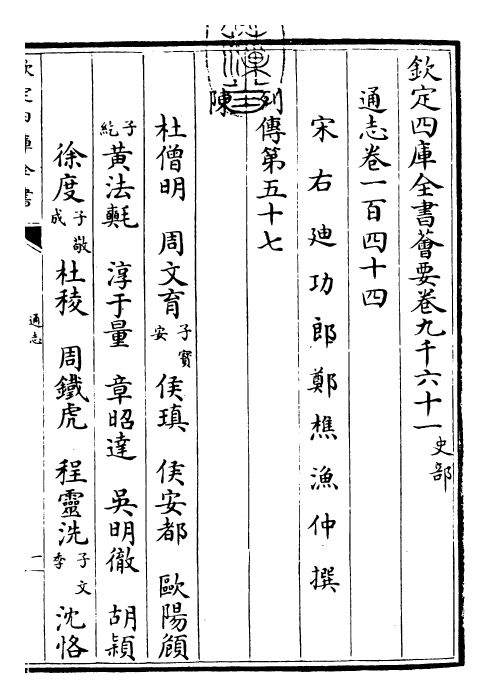 欽定四庫全書薈要卷九千六十一史部
通志卷一百四十四
宋右廸功郎鄭樵漁仲撰
列傳第五十七
陳
杜僧明 周文育子寳安 侯瑱 侯安都 歐陽頠
子紇 黃法𣰰 淳于量 章昭達 吳明徹 胡穎
徐度子敬成 杜稜 周鐵虎 程靈洗子文季 沈恪
欽定四庫全書
通志
一